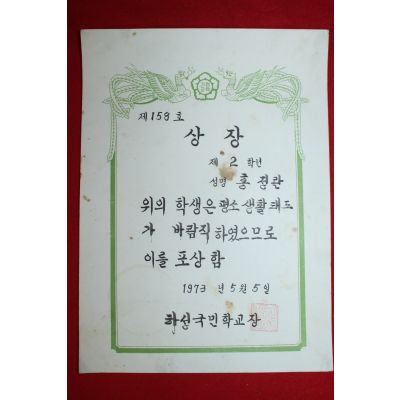 제158호
상장
제 2 학년
성명 홍정관
위의 학생은 평소 생활태도
가 바람직하였으므로
이를 포상함
1973년 5월 5일
하선국민학교장